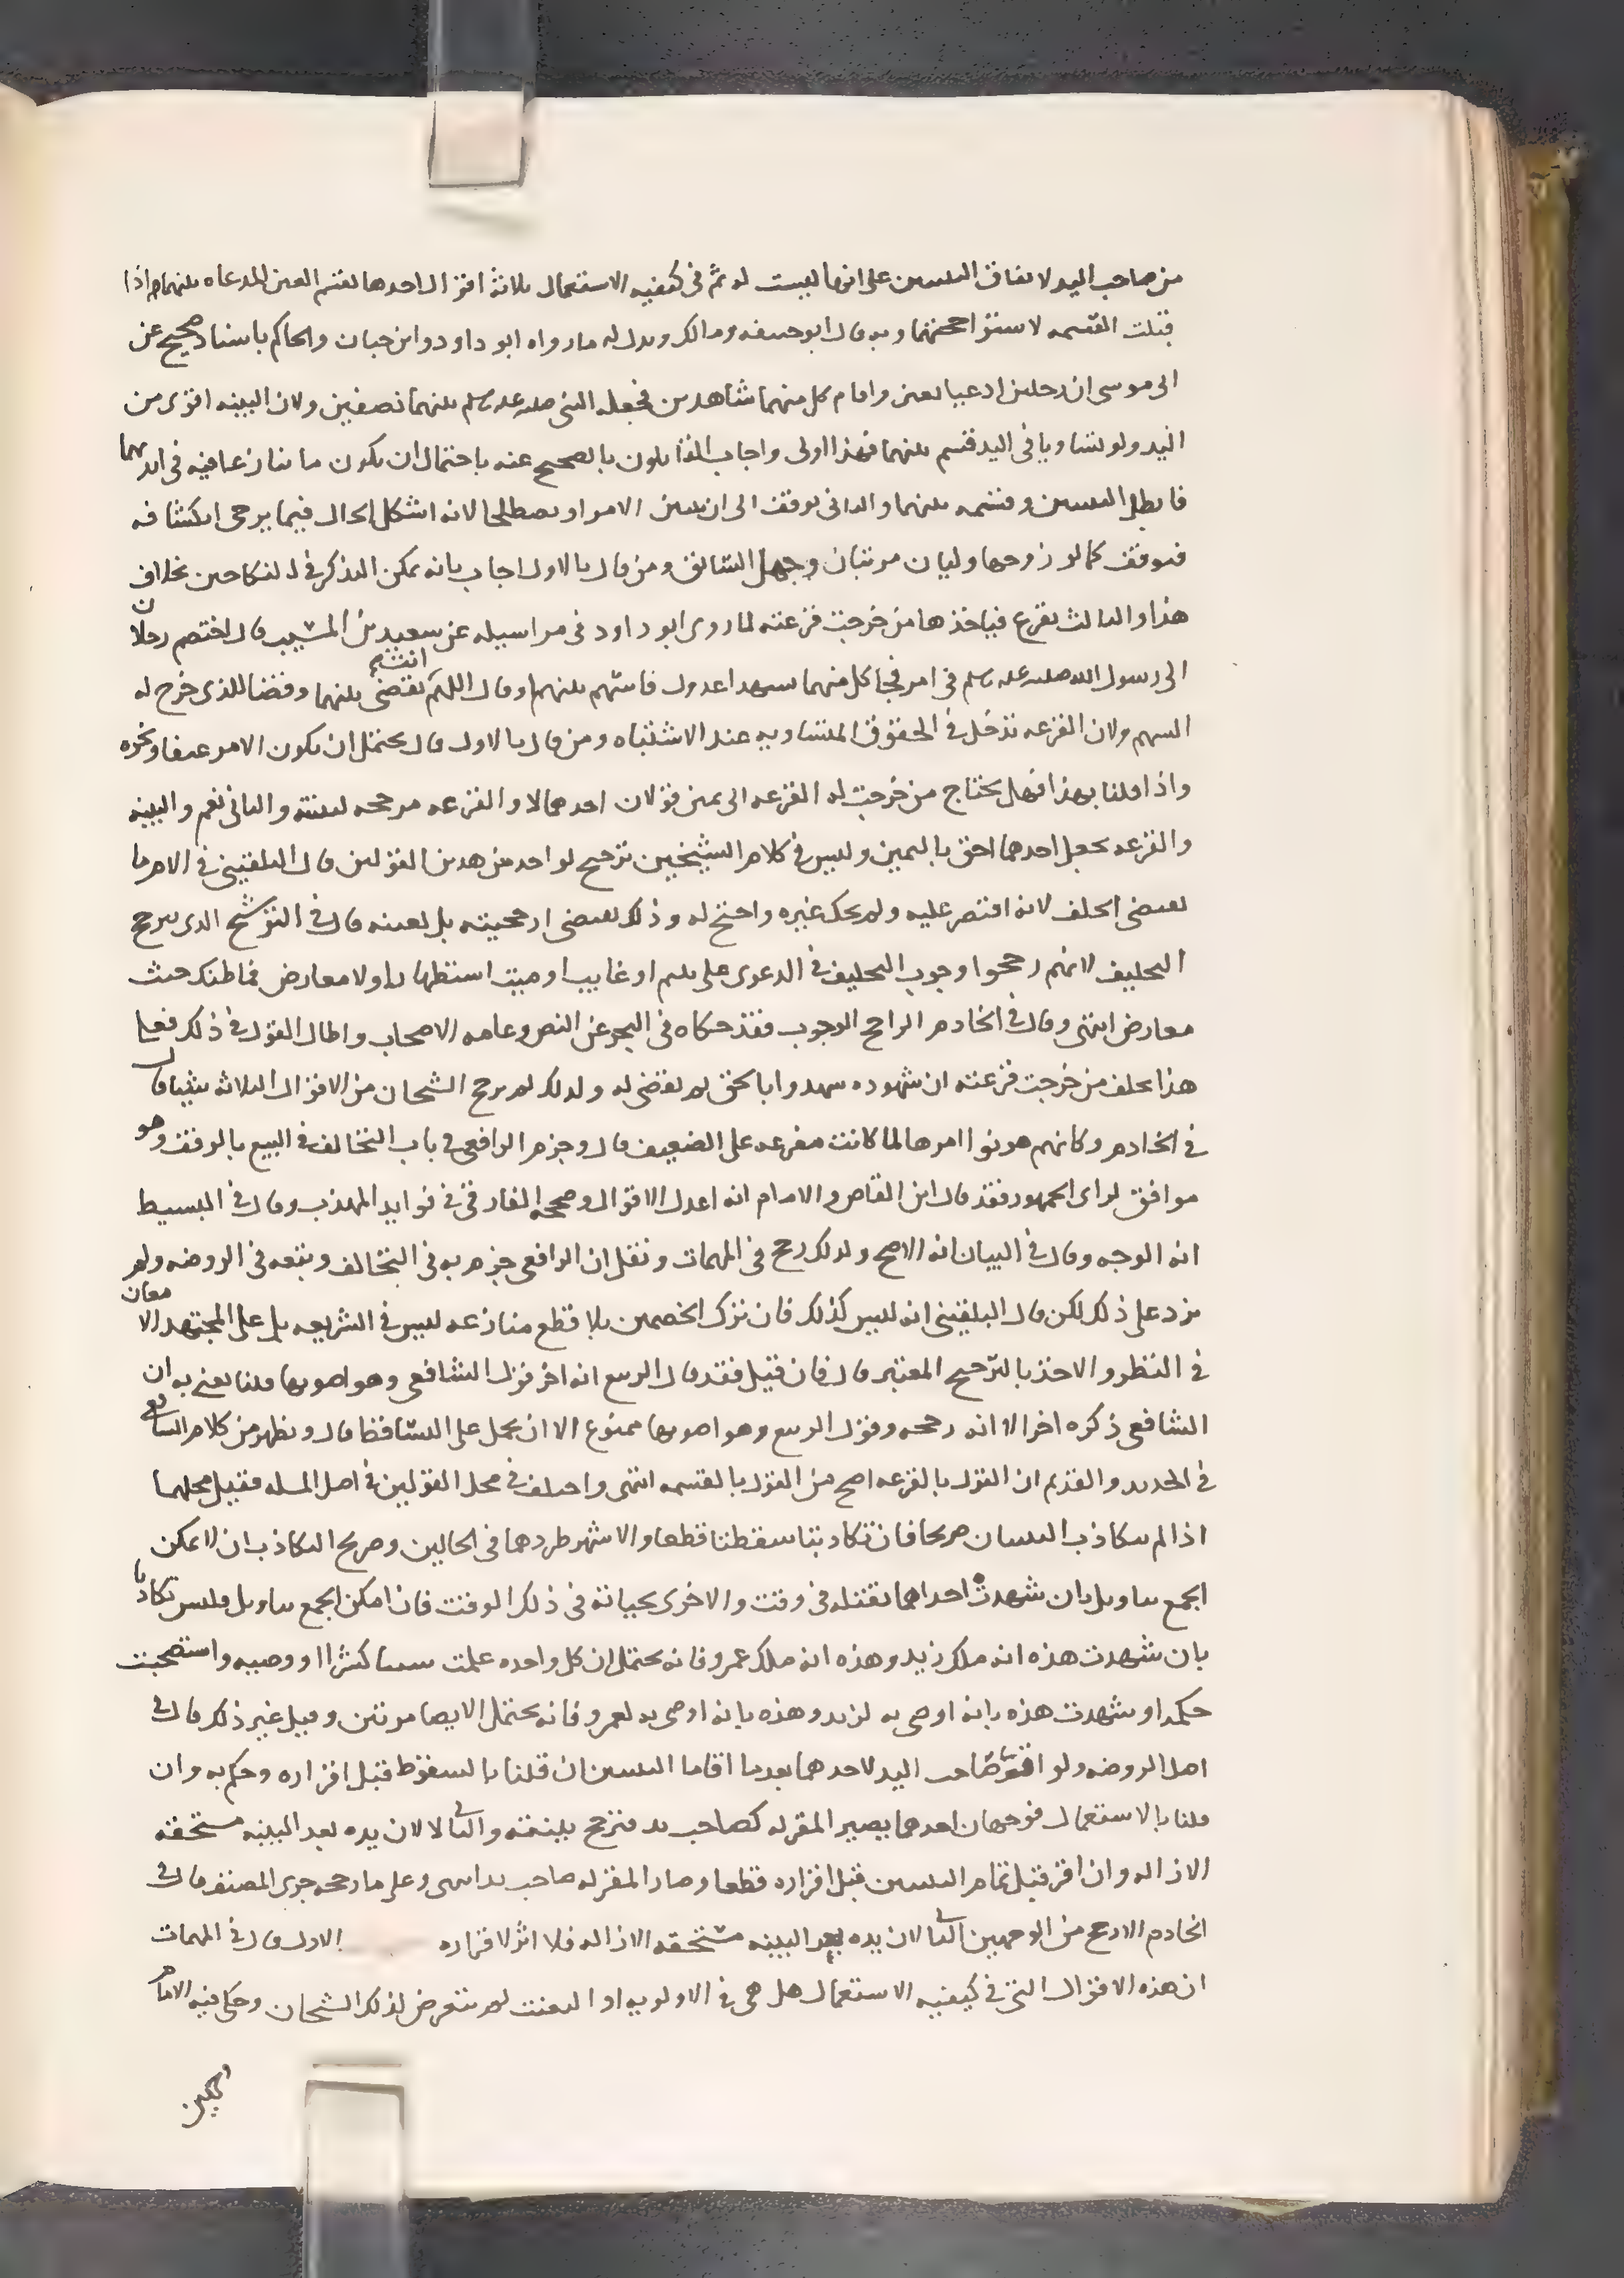 من صاحب اليد لاتفاق البينتين على انها ليست له ثم في كيفيه الاستعمال ثلاثة اقوال احدها تقسم العين المدعاه بينهما اذا
قبلت القسمه لاستوا حجتهما وبه قال ابو حنيفه ومالك ويدل له ما رواه ابو داود وابن حبان والحاكم باسناد صحيح عن
ابي موسى ان رجلين ادعيا بعير واقام كل منهما شاهدين فجعله النبي صلى الله عليه وسلم بينهما نصفين ولان البينه اقوى من
اليد ولو تساويا في اليد قسم بينهما فهذا اولى واجاب القايلون بالصحيح عنه باحتمال ان يكون ما تنازعا فيه في ايديهما
فابطل البينتين وقسمه بينهما والثاني توقف الى ان يتبين الامر او يصطلحا لانه اشكل الحال فيما يرجى انكشافه
فتوقف كما لو زوجها وليان مرتبان وجهل السابق ومن قال بالاول اجاب بانه يمكن التذكر في النكاحين بخلاف
هذا والثالث يقرع فياخذها من خرجت قرعته لما روى ابو داود في مراسيله عن سعيد بن المسيب قال اختصم رجلان
الى رسول الله صلى الله عليه وسلم في امر فجا كل منهما بشهدا عدول فاسهم بينهما وقال اللهم انت تقضي بينهما وقضا للذي خرج له
السهم ولان القرعه تدخل في الحقوق المتساويه عند الاشتباه ومن قال بالاول قال يحتمل ان يكون الامر عتقا ونحوه
واذا قلنا بهذا فهل يحتاج من خرجت له القرعه الى يمين قولان احدهما لا والقرعه مرجحه لبينته والثاني نعم والبينه
والقرعه تجعل احدهما احق باليمين وليس في كلام الشيخين ترجيح لواحد من هذين القولين قال البلقيني في الام ما
يقتضي الحلف لانه اقتصر عليه ولم يحك غيره واحتج له وذلك يقتضي ارجحيته بل تعينه قال في التوشح الذي يترجح
التحليف لانهم رجحوا وجوب التحليف في الدعوى على يتيم او غايب او ميت استظهارا ولا معارض فما ظنك حيث
معارض انتهى وقال في الخادم الراجح الوجوب فقد حكاه في البحر عن النص وعامه الاصحاب واطال القول في ذلك فعلى
هذا يحلف من خرجت قرعته ان شهوده شهدوا بالحق ثم يقضى له ولذلك لم يرجح الشيخان من الاقوال الثلاثه شيئا قال
في الخادم وكانهم هونوا امرها لما كانت مفرعه على الضعيف قال وجزم الرافعي في باب التخالف في البيع بالوقف وهو
موافق لراي الجمهور فقد قال ابن القاص والامام انه اعدل الاقوال وصححه الفارقي في فوايد المهذب وقال في البسيط
انه الوجه وقال في البيان انه الاصح ولذلك رجح في المهمات ونقل ان الرافعي جزم به في التخالف وتبعه في الروضه ولم
يزد على ذلك لكن قال البلقيني انه ليس كذلك فان ترك الخصمين بلا قطع منازعه ليس في الشريعه بل على المجتهد الامعان
في النظر والاخذ بالترجيح المعتبر قال فان قيل فقد قال الربيع انه اخر قول الشافعي وهو اصوبها قلنا يعني به ان
الشافعي ذكره اخرا لا انه رجحه وقول الربيع وهو اصوبها ممنوع الا ان يحمل على التساقط قال ويظهر من كلام الشافعي
في الجديد والقديم ان القول بالقرعه اصح من القول بالقسمه انتهى واختلف في محل القولين في اصل المسله فقيل محلهما
اذا لم يتكاذب البينتان صريحا فان تكاذبتا سقطتا قطعا والاشهر طردهما في الحالين وصريح التكاذب ان لا يمكن
الجمع بتاويل بان شهدت احداهما بقتله في وقت والاخرى بحياته في ذلك الوقت فان امكن الجمع بتاويل فليس تكاذبا
بان شهدت هذه انه ملك زيد وهذه انه ملك عمرو فانه يحتمل ان كل واحده علمت سببا كشرا او وصيه واستصحبت
حكمه او شهدت هذه بانه اوصى به لزيد وهذه بانه اوصى به لعمرو فانه يحتمل الايصا مرتين وقيل غير ذلك قال في
اصل الروضه ولو اقر صاحب اليد لاحدهما بعد ما اقاما البينتين ان قلنا بالسقوط قبل اقراره وحكم به وان
قلنا بالاستعمال فوجهان احدهما يصير المقر له كصاحب يد فترجح بينته والثاني لا لان يده بعد البينه مستحقه
الازاله وان اقر قبل تمام البينتين قبل اقراره قطعا وصار المقر له صاحب يد انتهى وعلى ما رجحه جرى المصنف قال في
الخادم الارجح من الوجهين الثاني لان يده بعد البينه مستحقه الازاله فلا اثر لاقراره الاول قال في المهمات
ان هذه الاقوال التي في كيفيه الاستعمال هل هي في الاولويه او التعيت لم يتعرض لذلك الشيخان وحكى فيه الامام
وجهين